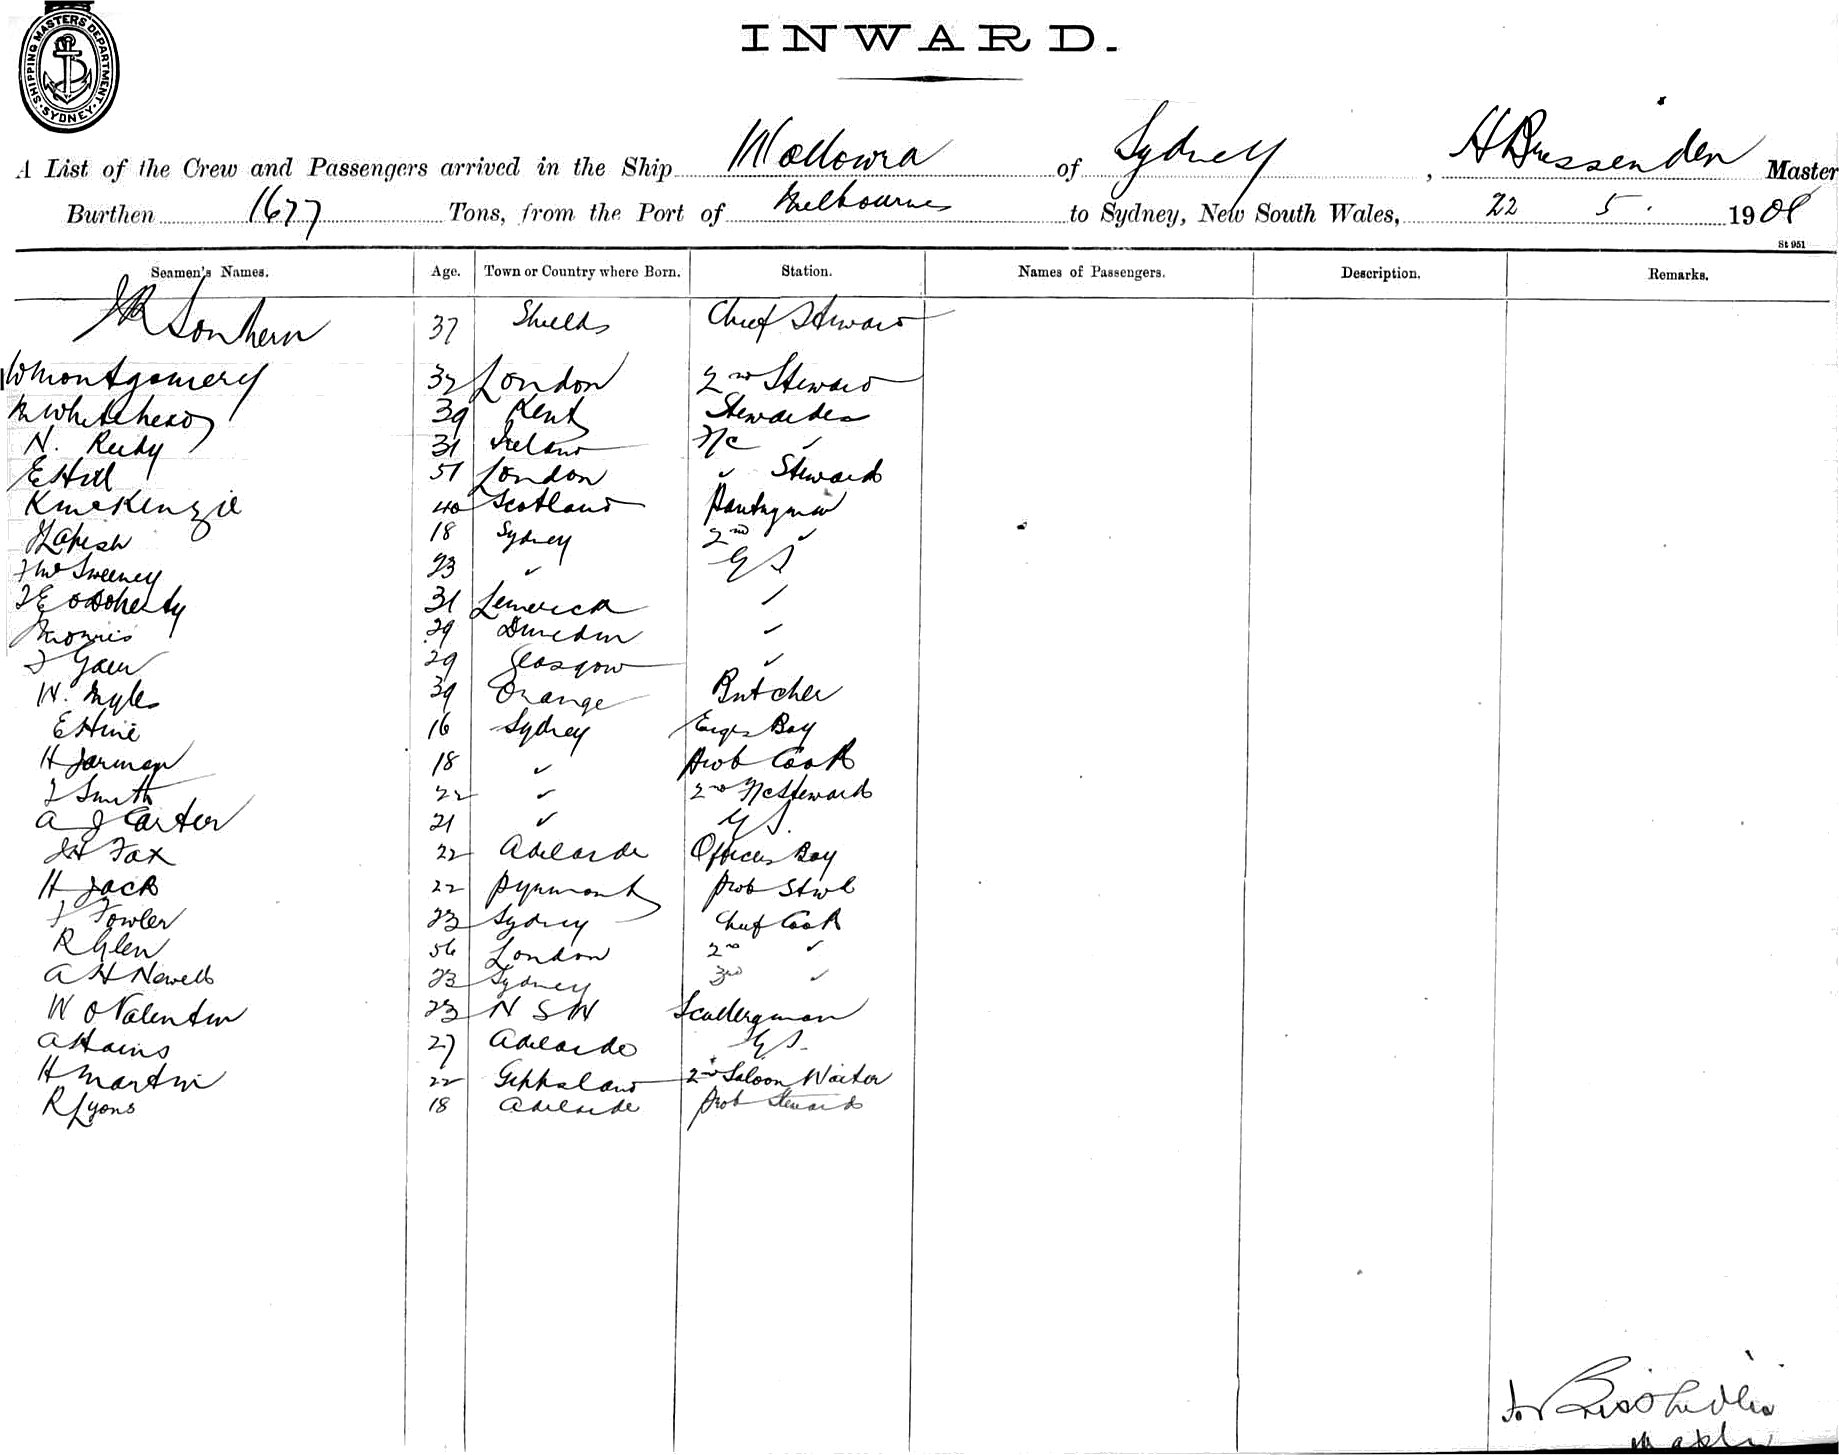 SHIPPING MASTERS DEPARTMENT. SYDNEY.
INWARD.
A List of the Crew and Passengers arrived in the Ship Wollowra of Sydney, Master
Burthen 1677 Tons, from the Port of Melbourne to Sydney, New South Wales, 22 5. 1908
St 951
Seamen's Names. Age. Town or Country where Born. Station. Names of Passengers. Description. Remarks.
37 Shields Chief Steward
W Montgomery 32 London 2nd Steward
M Whitehead 39 Kent Stewardess
N. Reidy 31 Ireland FC ✓
E Hill 51 London ✓ Steward
K McKenzie 40 Scotland Pantryman
18 Sydney 2nd ✓
McSweeney 23 ✓ G S
O'Doherty 31 Limerick ✓
Morris 29 Dunedin ✓
29 Glasgow ✓
W. Myles 39 Orange Butcher
E Hine 16 Sydney Engrs Boy
H Jarman 18 ✓ Prob Cook
Smith 22 ✓ 2nd FC Steward
A J Carter 21 ✓ G S.
Fox 22 Adelaide Officers Boy
H Jack 22 Pyrmont Prob Stwd
Fowler 23 Sydney Chief Cook
R Glen 56 London 2nd ✓
A H Newell 23 Sydney 3rd ✓
W O Valentin 23 N S W Sculleryman
A Hains 27 Adelaide G S.
H Martin 22 Gippsland 2nd Saloon Waiter
R Lyons 18 Adelaide Prob Steward
for